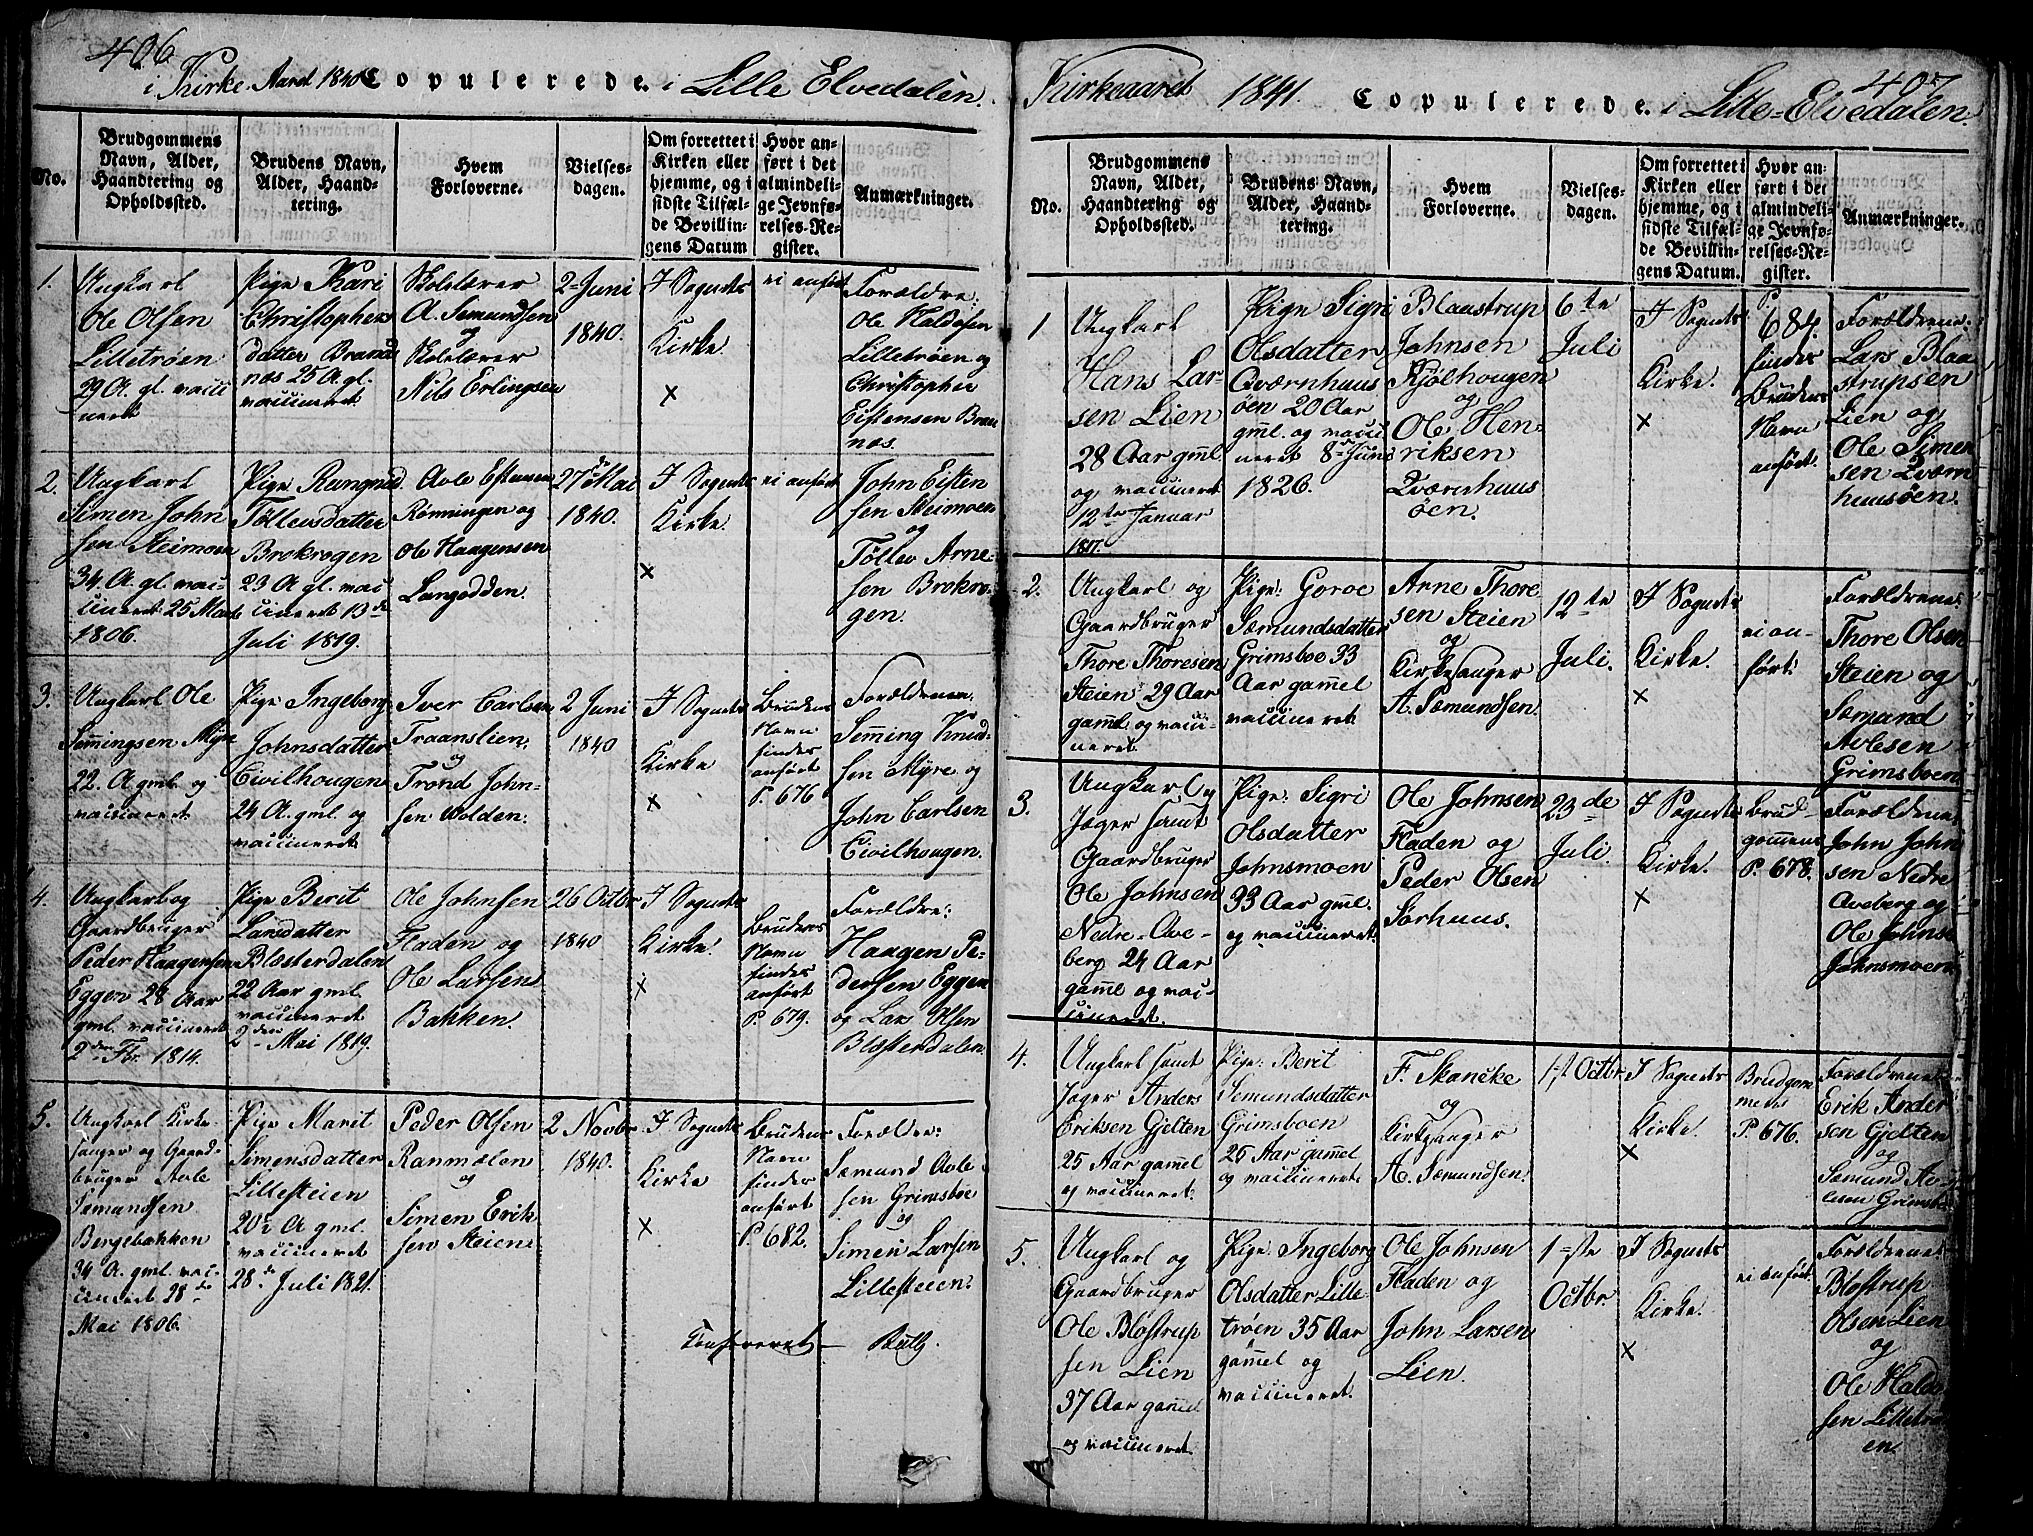 406
i Kirke-Aaret 1840 Copulerede. i Lille Elvedalen.
No.
Brudgommens
Navn, Alder,
Haandtering og
Opholdssted.
Brudens Navn,
Alder, Haand-
tering.
Hvem
Forloverne.
Vielses-
dagen.
Om forrettet i
Kirken eller
hjemme, og i
sidste Tilfæl-
de Bevillin-
gens Datum
Hvor an-
ført i det
almindeli-
ge Jevnfø-
relses-Re-
gister.
Anmærkninger.
1.
Ungkarl
Ole Olsen
Lilletrøen
29 A. gl. vacci
neret
Pige Kari
Christophers
datter Brænd
næs 25 A gl.
vaccineret
Skolelærer
A. Semundsen
og
Skolelærer
Nils Erlingsen
2 Juni
1840.
I Sognets
Kirke.
×
ei anført
Forældre:
Ole Haldosen
Lilletrøen og
Christopher
Eistensen Bræn
næs.
2.
Ungkarl
Simen John
sen Steimoen
34 A. gl. vac-
cineret 25 Mart
1806.
Pige Rangnid
Tøllevsdatter
Brokrogen
23 A gl. vac
cineret 13de
Juli 1819.
Avle Estensen
Rønningen og
Ole Haagensen
Langodden.
27de Mai
1840.
I Sognets
Kirke.
×
ei anført
John Eisten
sen Steimoen
og
Tøllev Arne-
sen Brokro-
gen.
3.
Ungkarl Ole
Semmingsen Myre
22. A gml. og
vaccineret
Pige Ingeborg
Johnsdatter
Civilhougen
24 A. gml. og
vaccineret
Iver Carlsen
Traanslien
og
Trond John-
sen Volden.
2 Juni
1840
I Sognets
Kirke
×
Brudens
Navn
findes
anført
P. 676
Forældrene.
Seming Knud-
sen Myre og
John Carlsen
Civilhougen.
4.
Ungkarl og
Gaardbruger
Peder Haagensen
Eggen 28 Aar
gml. vaccineret
2den Fbr. 1814.
Pige Berit
Larsdatter
Blæsterdalen
22 Aar gml.
vaccineret
2den Mai 1819.
Ole Johnsen
Fladen og
Ole Larsen
Bakken.
26 Octbr
1840
I Sognets
Kirke.
×
Brudens
Navn
findes
anført
P. 679.
Forældre:
Haagen Pe-
dersen Eggen
og Lars Olsen
Blæsterdalen
5.
Ungkarl Kirke-
sanger og Gaard-
bruger Avle
Sæmundsen
Bergebakken
34 A. gml. vac-
cineret 28de
Mai 1806.
Pige Marit
Simensdatter
Lillesteien
20 A gml.
vaccineret
28de Juli 1821.
Peder Olsen
Ranmælen
og
Simen Erik
sen Steien
2 Novbr
1840.
I Sognets
Kirke
×
Brudens
Navn
findes
anført
P. 682.
Forældre:
Sæmund Avle-
sen Grimsboe
og
Simen Larsen
Lillesteien.
407
Kirkeaaret 1841. Copulerede. i Lille-Elvedalen.
No.
Brudgommens
Navn, Alder,
Haandtering og
Opholdssted.
Brudens Navn,
Alder, Haand-
tering.
Hvem
Forloverne.
Vielses-
dagen.
Om forrettet i
Kirken eller
hjemme, og i
sidste Tilfæl-
de Bevillin-
gens Datum.
Hvor an-
ført i det
almindeli-
ge Jevnfø-
relses-Re-
gister.
Anmærkninger.
1
Ungkarl
Hans Lar
sen Lien
28 Aar gml
og vaccineret
12te Januar
1817.
Pige Sigri
Olsdatter
Qværnhuus
øen 20 Aar
gml. og vacci
neret 8de Juni
1826.
Blaastrup
Johnsen
Kjølhougen
og
Ole Hen-
riksen
Qværnhuus
øen.
6te
Juli
I Sognets
Kirke.
×
P.
684
findes
Brudens
Navn
anført.
Forældrene:
Lars Blaa
strupsen
Lien og
Ole Simen
sen Qværn
huusøen.
2.
Ungkarl og
Gaardbruger
Thore Thoresen
Steien 29 Aar
gaml. og vacci-
neret.
Pige: Goroe
Sæmundsdatter
Grimsboe 33
Aar gammel
vaccineret
Arne Thore
sen Steien
og
Kirkesanger
A. Sæmundsen.
12te
Juli.
I Sognets
Kirke.
×
ei an-
ført.
Forældrene:
Thore Olsen
Steien og
Sæmund
Avlesen
Grimsboen
3.
Ungkarl og
Jæger samt
Gaardbruger
Ole Johnsen
Nedre-Ave-
berg 24 Aar
gaml og vac-
cineret.
Pige: Sigri
Olsdatter
Johnsmoen
33 Aar gml.
og vaccineret.
Ole Johnsen
Fladen og
Peder Olsen
Sorhuus.
23de
Juli.
I Sognets
Kirke.
×
Brud-
gommens
P. 678.
Forældrene
John John
sen Nedre
Aveberg og
Ole Johnse
Johnsmoen
4.
Ungkarl samt
Jæger Anders
Eriksen Gjelten
25 Aar gammel
og vaccineret.
Pige: Berit
Semundsdatter
Grimsboen
26 Aar gammel
og vaccineret.
F. Skancke
og
Kirksanger
A. Sæmundsen.
1st Octbr.
I Sognets
Kirke.
×
Brudgom
menes
P. 676.
Forældrene:
Erik Ander
sen Gjelten
og
Sæmund Av-
lesen Grimsb.
5.
Ungkarl og
Gaardbruger
Ole Blostrup
sen Lien
37 Aar gammel
og vaccineret
Pige: Ingeborg
Olsdatter Lille
trøen 35 Aar
gammel og
vaccineret.
Ole Johnsen
Fladen og
John Larsen
Lien.
1-ste
Octbr.
I Sognets
Kirke.
×
ei anført.
Forældrene:
Blostrup
Olsen Lien
og
Ole Haldo
sen Lilletrø
en.